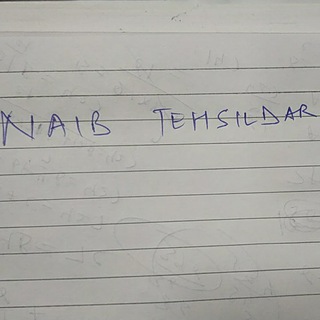 NAIB TEHSILDAR